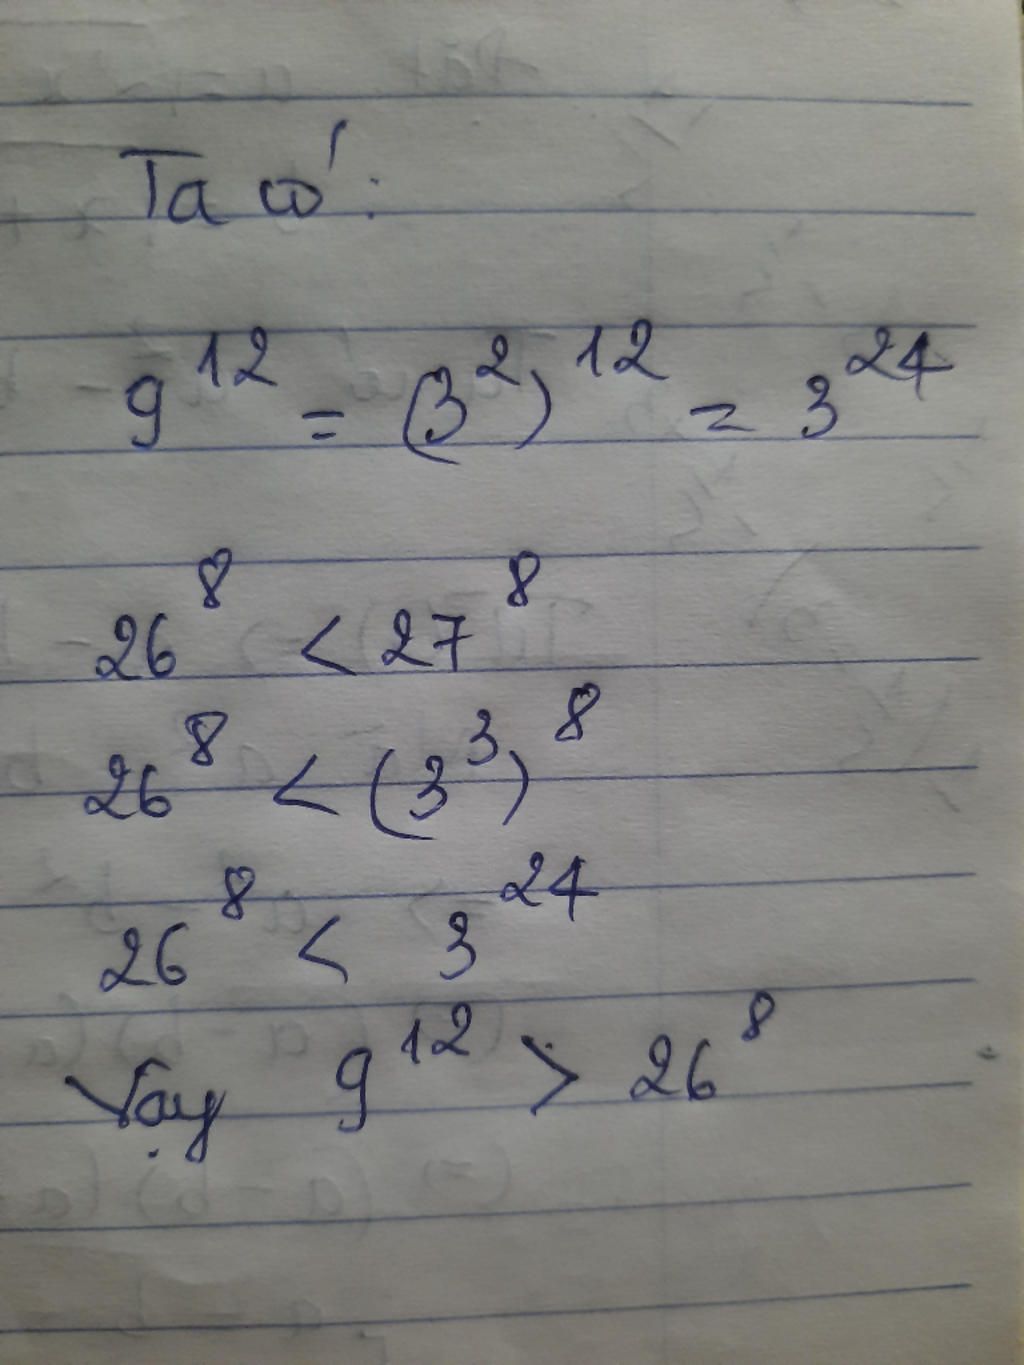 Ta có:
9^12 = (3^2)^12 = 3^24
26^8 < 27^8
26^8 < (3^3)^8
26^8 < 3^24
Vậy 9^12 > 26^8